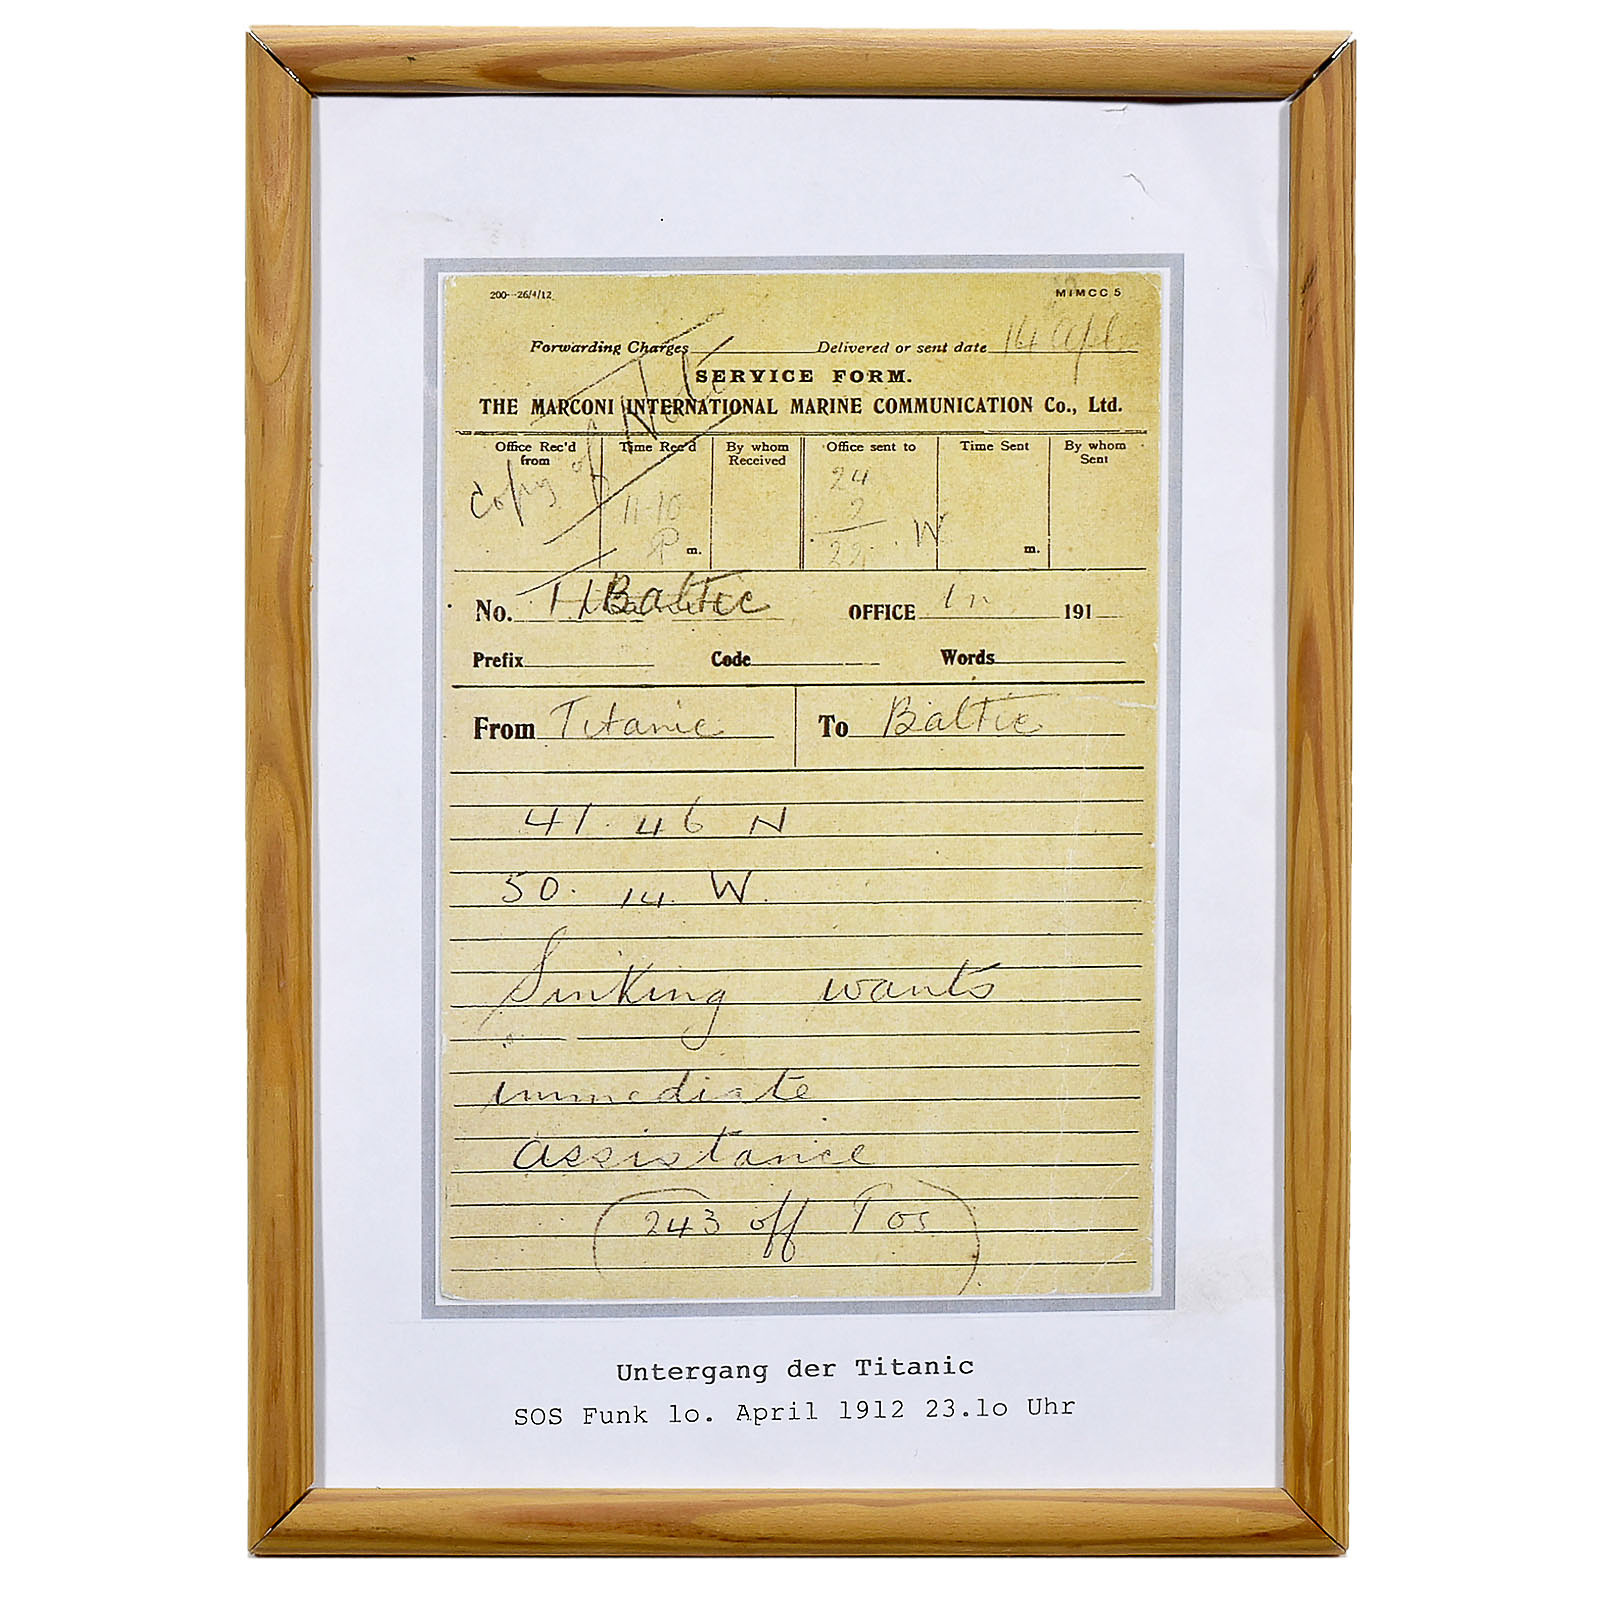 200--26/4/12 MIMCC 5
Forwarding Charges Delivered or sent date 14 Apl
SERVICE FORM.
THE MARCONI INTERNATIONAL MARINE COMMUNICATION Co., Ltd.
Office Rec'd from Time Rec'd By whom Received Office sent to Time Sent By whom Sent
Copy of
11-10 P m. 24 2 22 W m.
No. Baltic OFFICE In 191
Prefix Code Words
From Titanic To Baltic
41. 46 N
50. 14. W.
Sinking wants
immediate
assistance
243 off
Untergang der Titanic
SOS Funk lo. April 1912 23.lo Uhr